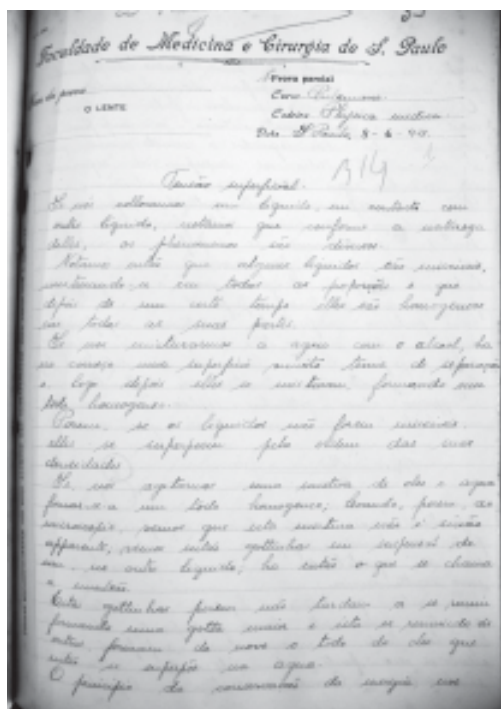 Faculdade de Medicina e Cirurgia de S. Paulo
Prova parcial
O LENTE
Curso
Cadeira Physica medica
Data S. Paulo, 8-6-
Tensão superficial.
Se nós collocarmos um liquido, em contacto com
outro liquido, notamos que conforme a natureza
delles, os phenomenos são diversos.
Notamos então que alguns liquidos são misciveis,
misturando-se em todas as proporções e que
depois de um certo tempo elles são homogeneos
em todas as suas partes.
Se nós misturarmos a agua com o alcool, ha
no começo uma superficie muito tenue de separação
e logo depois elles se misturam, formando um
todo homogeneo.
Porem, se os liquidos não forem misciveis,
elles se superpoem pela ordem das suas
densidades
Se nós agitarmos uma mistura de oleo e agua
forma-se um todo homogeneo; levando, porem, ao
microscopio, vemos que esta mistura não é senão
apparente, vemos então gottinhas em suspensão de
um, no outro liquido; ha então o que se chama
a emulsão.
Estas gottinhas porem não tardam a se reunir
formando uma gotta maior e esta se reunindo ás
outras, formam de novo o todo de oleo que
então se superpõe na agua.
O principio da conservação da energia nos